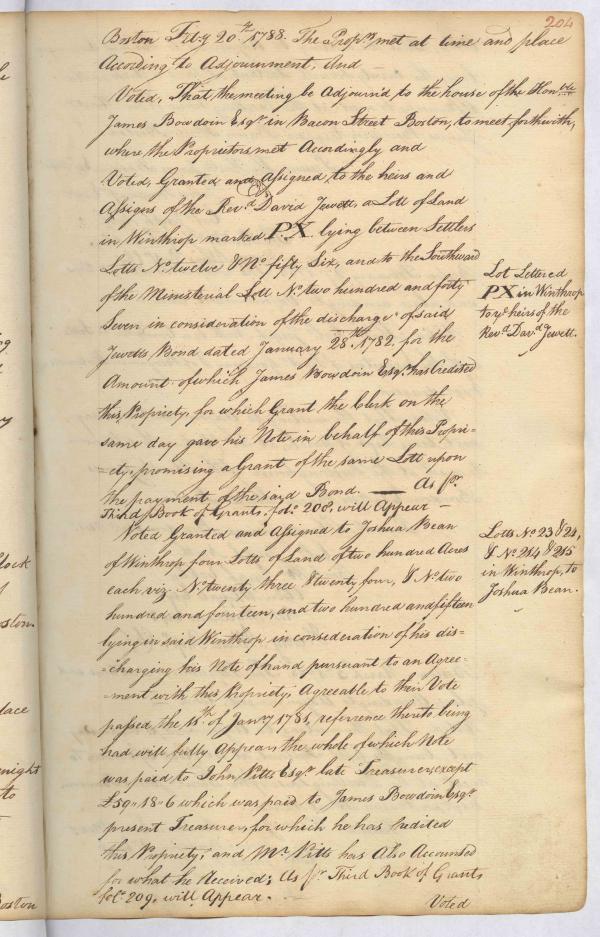 204
Boston Feby 20.th 1788. The Prop.rs met at time and place
According to Adjournment, And
Voted, That, the meeting be Adjourn'd to the house of the Hon.ble
James Bowdoin Esq.r in Bacon Street Boston, to meet forthwith,
where the Proprietors met Accordingly and
Voted, Granted and Assigned, to the heirs and
Assigns of the Rev.d David Jewett, a Lott of Land
in Winthrop marked P.X. lying between Settlers
Lotts No. twelve & No. fifty Six, and to the Southward
of the Ministerial Lott No. two hundred and forty
Seven in consideration of the discharge of said
Jewetts Bond dated January 28.th 1782, for the
Amount of which James Bowdoin Esq.r has Credited
this Propriety, for which Grant the Clerk on the
same day gave his Note in behalf of this Propri=
=ety, promising a Grant of the same Lott upon
the payment of the said Bond. — As p.r
Third Book of Grants, fol.o 208, will Appear —
Voted Granted and Assigned to Joshua Bean
of Winthrop four Lotts of Land of two hundred Acres
each viz. No. twenty three & twenty four, & No. two
hundred and fourteen, and two hundred and fifteen
lying in said Winthrop in consideration of his dis=
=charging his Note of hand pursuant to an Agree=
=ment with this Propriety; Agreeable to their Vote
passed the 18.th of Jan.y 1781, reference thereto being
had will fully Appear, the whole of which Note
was paid to John Pitts Esq.r late Treasurer, except
£59"18"6 which was paid to James Bowdoin Esq.r
present Treasurer, for which he has Credited
this Propriety; and Mr. Pitts has Also Accounted
for what he Received; As p.r Third Book of Grants
fol.o 209, will Appear.
Voted
Lot Lettered
PX in Winthrop
to ye heirs of the
Rev.d Dav.d Jewett.
Lotts No 23 & 24,
& No 214 & 215
in Winthrop, to
Joshua Bean.